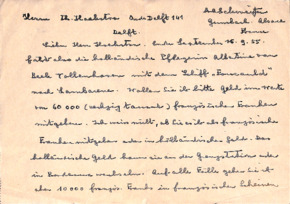 Herrn Th. Hoekstra Oude Delft 141
Delft.
Albert Schweitzer
Gunsbach, Alsace
France
Lieber Herr Hoekstra. Ende September 16.9.55.
fährt also die holländische Pflegerin Albertine van
Beek Vollenhoven mit dem Schiff "Foucauld" nach Lambarene. Wollen Sie ihr bitte Geld im Werte
von 60 000 (sechzig tausend) französischen Franken
mitgeben. Ich weiss nicht, ob Sie es ihr als französische
Franken mitgeben oder in holländischem Geld. Das
holländische Geld kann sie an der Grenzstation oder
in Bordeaux wechseln. Auf alle Fälle geben Sie ihr
etwa 10 000 französ. Franks in französischen Scheinen